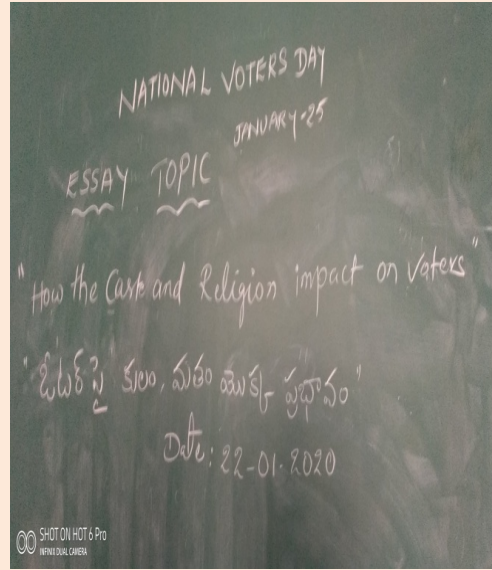 NATIONAL VOTERS DAY
JANUARY-25
ESSAY TOPIC
"How the Cast and Religion impact on Voters"
"ఓటర్ పై కులం, మతం యొక్క ప్రభావం"
Date: 22-01-2020
SHOT ON HOT 6 Pro
INFINIX DUAL CAMERA